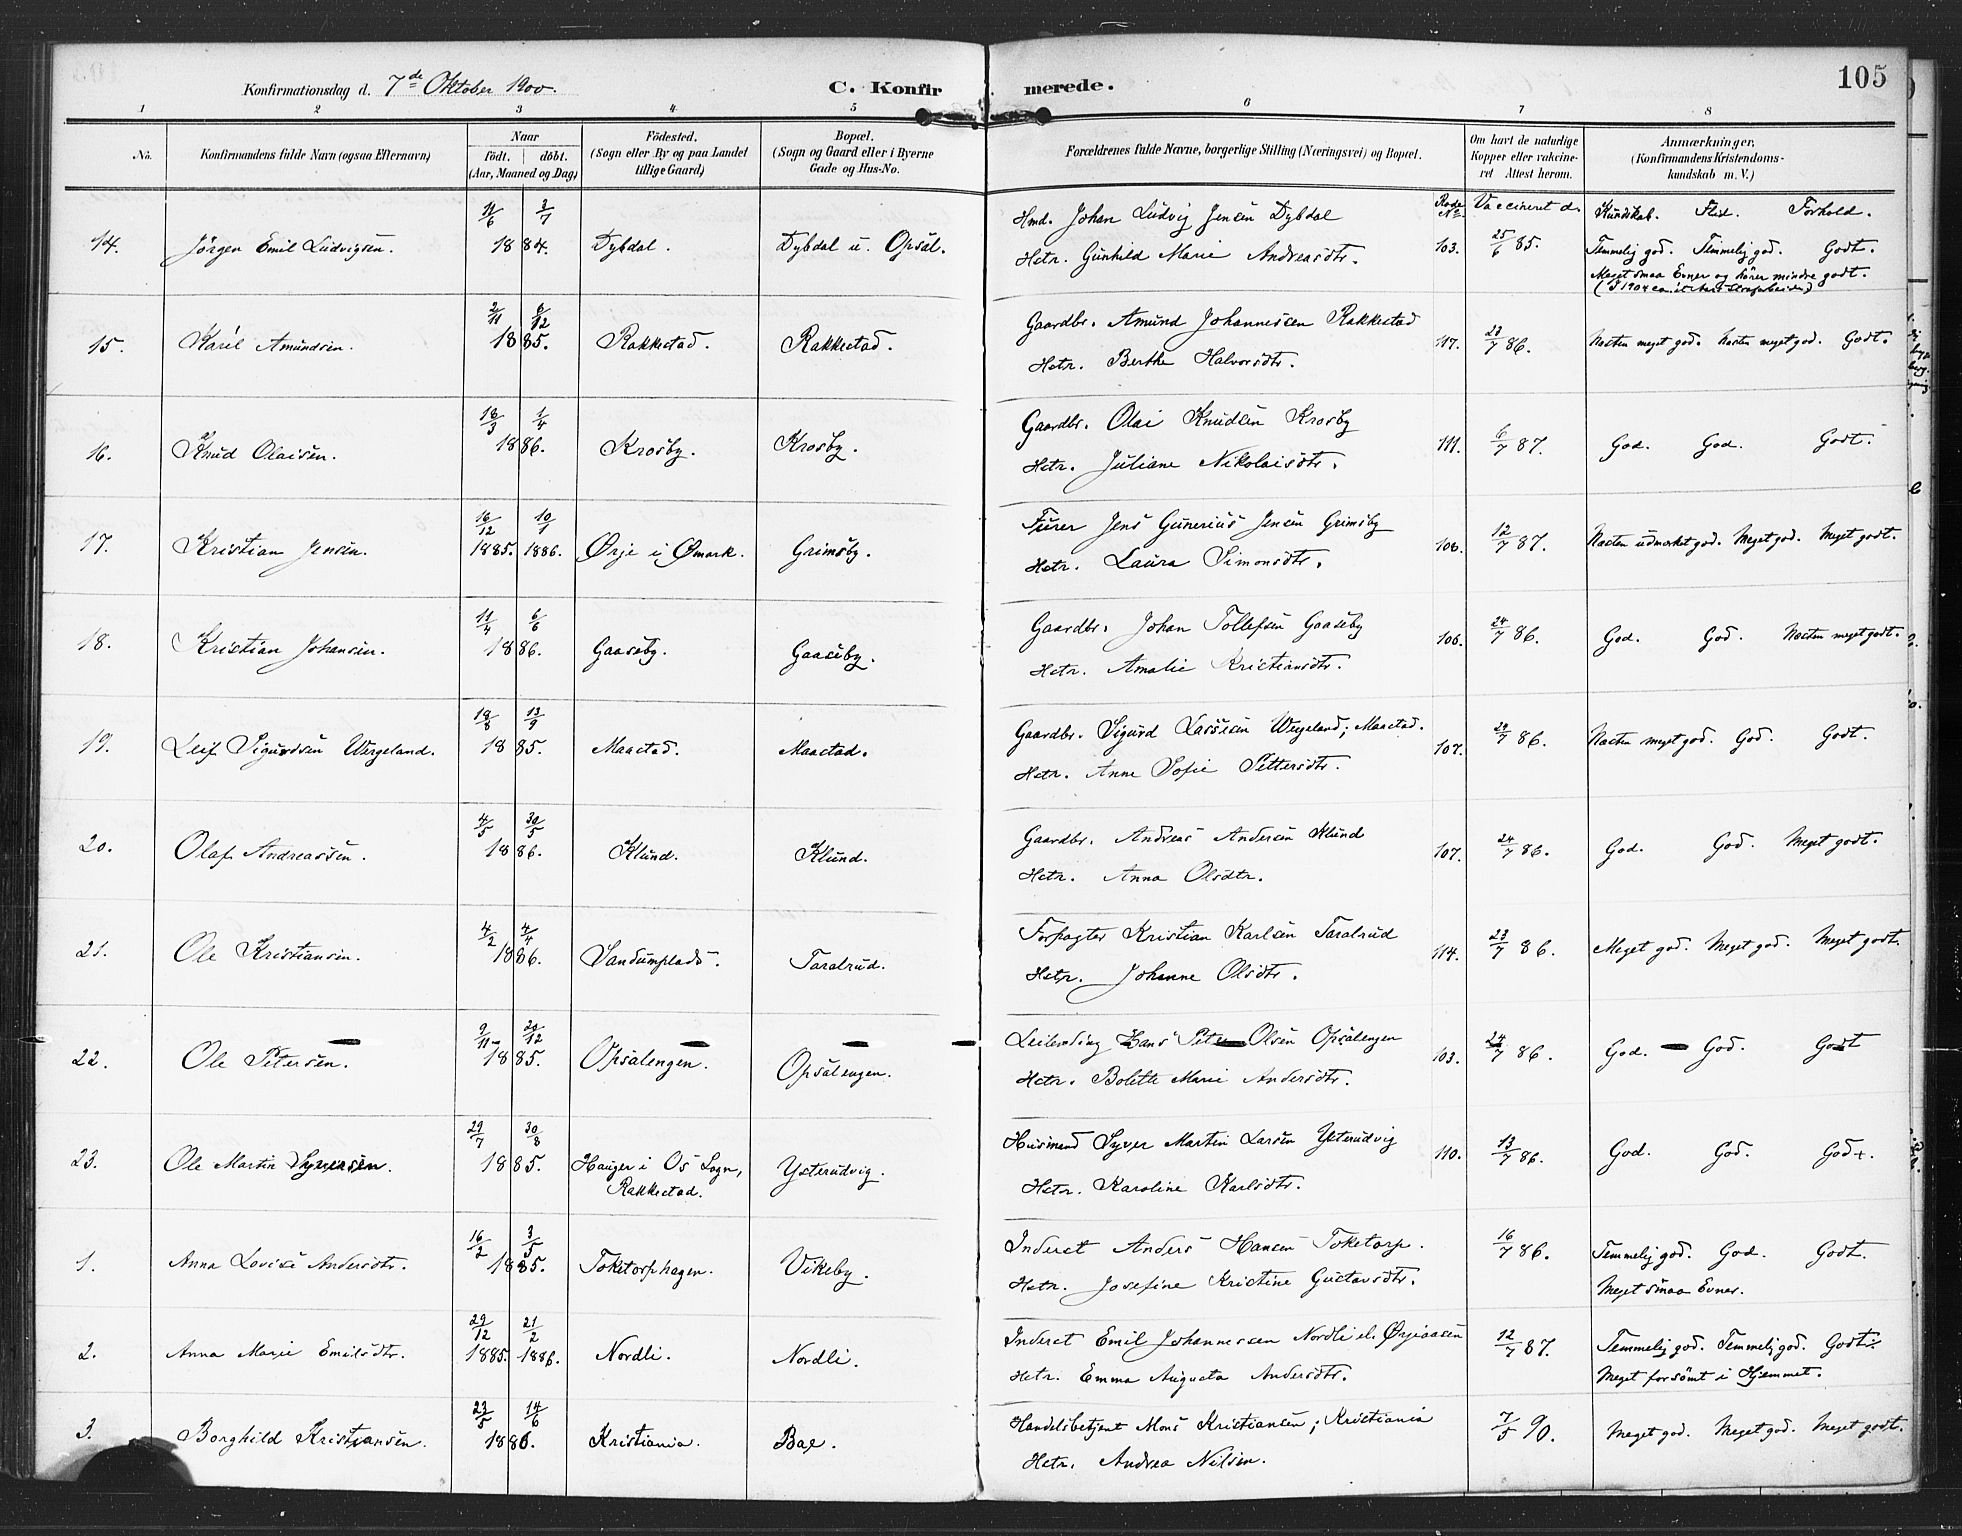 105
Konfirmationsdag d. 7de Oktober 1900.
C. Konfirmerede.
1 2 3 4 5 6 7 8
No.
Konfirmandens fulde Navn (ogsaa Efternavn)
Naar
födt. döbt.
(Aar, Maaned og Dag)
Födested.
(Sogn eller By og paa Landet
tillige Gaard)
Bopæl.
(Sogn og Gaard eller i Byerne
Gade og Hus-No.
Forældrenes fulde Navne, borgerlige Stilling (Næringsvei) og Bopæl.
Om havt de naturlige
Kopper eller vakcine-
ret Attest herom.
Anmærkninger,
(Konfirmandens Kristendoms-
kundskab m. V.)
Rode No. Vaccineret d. Kundskab. Flid. Forhold.
14. Jörgen Emil Ludvigsen. 11/6 3/7 1884. Dybdal. Dybdal u. Opsal.
Hmd. Johan Ludvig Jensen Dybdal
Hstr. Gunhild Marie Andreasdtr. 103. 25/6 85. Temmelig god. Temmelig god. Godt.
Meget smaa Evner og hörer mindre godt.
15. Karel Amundsen. 2/11 6/12 1885. Rakkestad. Rakkestad.
Gaardbr. Amund Johannessen Rakkestad
Hstr. Berthe Halvorsdtr. 117. 23/7 86. Næsten meget god. Næsten meget god. Godt.
16. Knud Olaisen. 18/3 1/4 1886. Krosby. Krosby.
Gaardbr. Olai Knudsen Krosby
Hstr. Juliane Nikolaisdtr. 111. 6/7 87. God. God. Godt.
17. Kristian Jensen. 16/12 1885. 10/1 1886. Ørje i Ømark. Grimsby.
Furer Jens Gunerius Jensen Grimsby
Hstr. Laura Simonsdtr. 106. 12/7 87. Næsten udmærket god. Meget god. Meget godt.
18. Kristian Johansen. 11/4 6/6 1886. Gaaseby. Gaaseby.
Gaardbr. Johan Tollefsen Gaaseby
Hstr. Amalie Kristiansdtr. 106. 24/7 86. God. God. Næsten meget godt.
19. Leif Sigurdsen Wergeland. 18/8 13/9 1885. Maastad. Maastad.
Gaardbr. Sigurd Lassesen Wegeland; Maastad.
Hstr. Anne Sofie Pettersdtr. 107. 24/7 86. Næsten meget god. God. Godt.
20. Olaf Andreassen. 4/5 30/5 1886. Klund. Klund.
Gaardbr. Andreas Andersen Klund
Hstr. Anna Olsdtr. 107. 24/7 86. God. God. Meget godt.
21. Ole Kristiansen. 4/2 4/4 1886. Sandumplads. Taralrud.
Forpagter Kristian Karlsen Taralrud
Hstr. Johanne Olsdtr. 114. 23/7 86. Meget god. Meget god. Meget godt.
22. Ole Petersen. 9/11 20/12 1885. Opsalengen. Opsalengen.
Leilending Hans Peter Olsen Opsalengen
Hstr. Bolette Marie Andersdtr. 103. 24/7 86. God. God. Godt
23. Ole Martin Syversen. 29/7 30/8 1885. Hauger i Os Sogn, Rakkestad. Ysterudvig.
Husmand Syver Martin Larsen Ysterudvig
Hstr. Karoline Karlsdtr. 110. 13/7 86. God. God. Godt.
1. Anna Lovise Andersdtr. 16/2 3/5 1885. Toketorphagen. Vikeby.
Inderst Anders Hansen Toketorp.
Hstr. Josefine Kristine Gustavsdtr. 16/7 86. Temmelig god. God. Godt.
Meget smaa Evner.
2. Anna Marie Emilsdtr. 29/12 1885. 21/2 1886. Nordli. Nordli.
Inderst Emil Johannessen Nordli el. Ørjeaasen
Hstr. Emma Augusta Andersdtr. 12/7 87. Temmelig god. Temmelig god. Godt.
Meget forsömt i Hjemmet.
3. Borghild Kristiansen. 23/5 14/6 1886. Kristiania. Bae.
Handelsbetjent Mons Kristiansen; Kristiania
Hstr. Andrea Nilsen. 7/5 90. Meget god. Meget god. Meget godt.